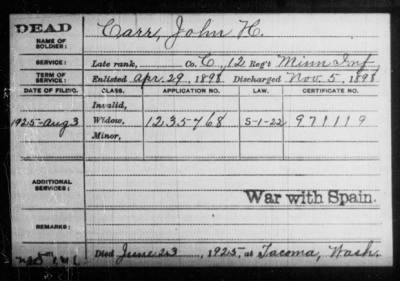 DEAD
NAME OF SOLDIER: Carr, John H.
SERVICE: Late rank, Co. C, 12 Reg't Minn Inf.
TERM OF SERVICE: Enlisted Apr. 29, 1898, Discharged Nov. 5, 1898
DATE OF FILING. CLASS. APPLICATION NO. LAW. CERTIFICATE NO.
Invalid,
1925-Aug 3 Widow, 1235768 5-1-22 971119
Minor,
ADDITIONAL SERVICES:
War with Spain.
REMARKS:
Died June 23, 1925, at Tacoma, Wash.